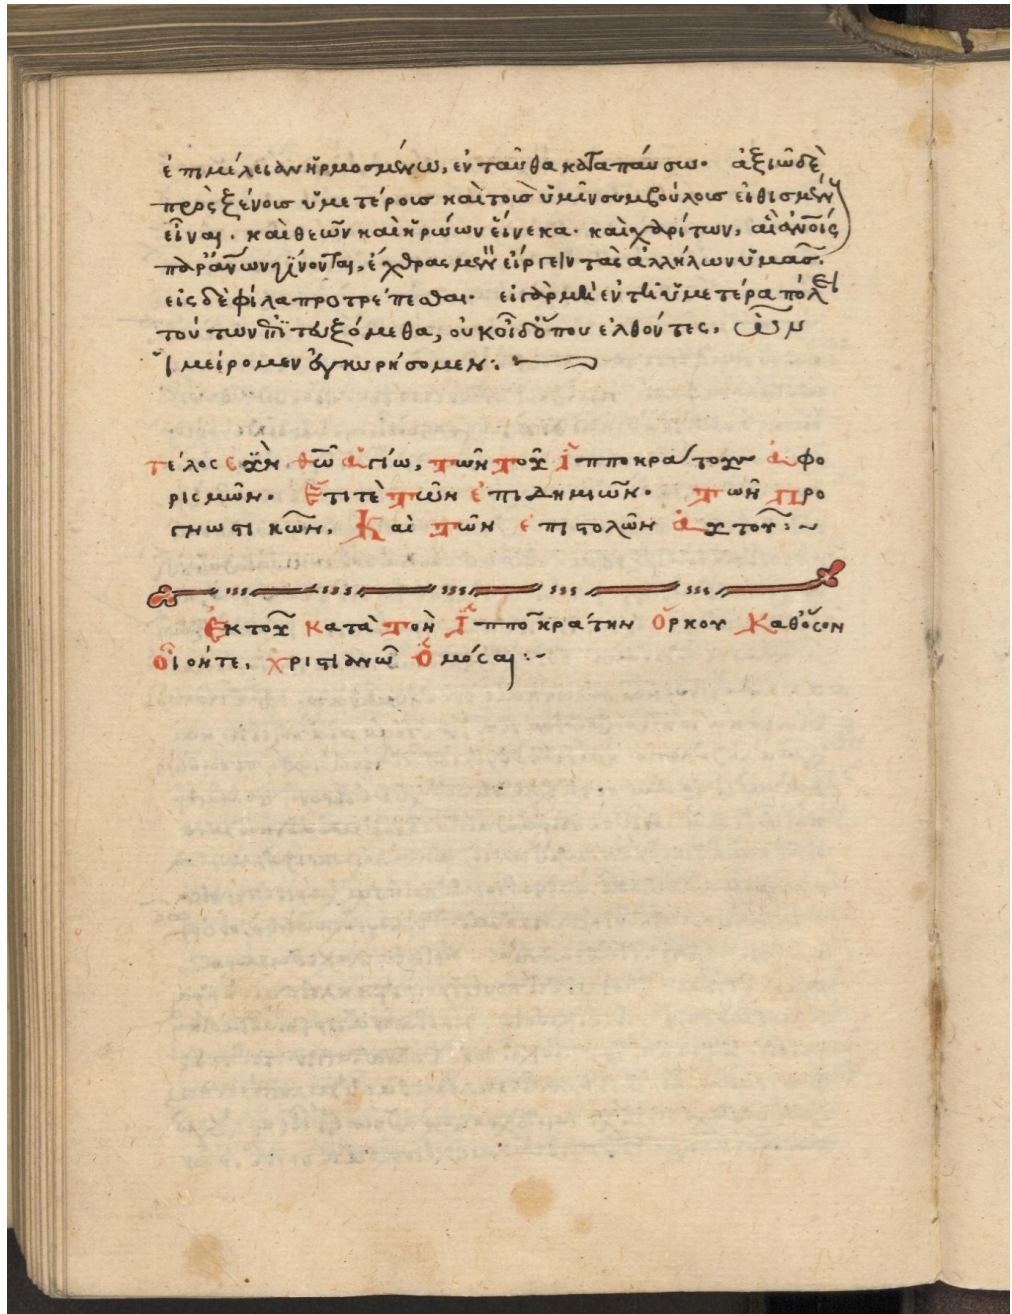 ἐπιμέλειαν ἡρμοσμένω, ἐνταῦθα καταπαύσω. ἀξιῶ δὲ
πρὸς ξένοις ὑμετέροις καὶ τοῖς ὑμῖν συμβούλοις εἰθισμένον
εἶναι. καὶ θεῶν καὶ ἡρώων εἵνεκα. καὶ χαρίτων, αἳ ἀνοις
παρ' ἀνων γίνονται, ἔχθρας μὲν εἴργειν τὰς ἀλλήλων ὑμᾶς.
εἰς δὲ φίλα προτρέπεσθαι. ἐν τῆ ὑμετέρα πόλει
τούτων τευξόμεθα, οὐκ οἶδ' ὅπου ἐλθόντες, ὧν
ἱμείρομεν ἐγκυρήσομεν:
τέλος σὺν θῶ ἁγίω, τῶν τοῦ Ἱπποκράτους ἀφο
ρισμῶν. Ἔτι τὲ τῶν ἐπιδημιῶν. τῶν Προ
γνωστικῶν. Καὶ τῶν ἐπιστολῶν αὐτοῦ:~
Ἐκ τοῦ κατὰ τὸν Ἱπποκράτην Ὅρκου Καθ' ὅσον
οἷόν τε, χριστιανῶ Ὀμόσαι:~